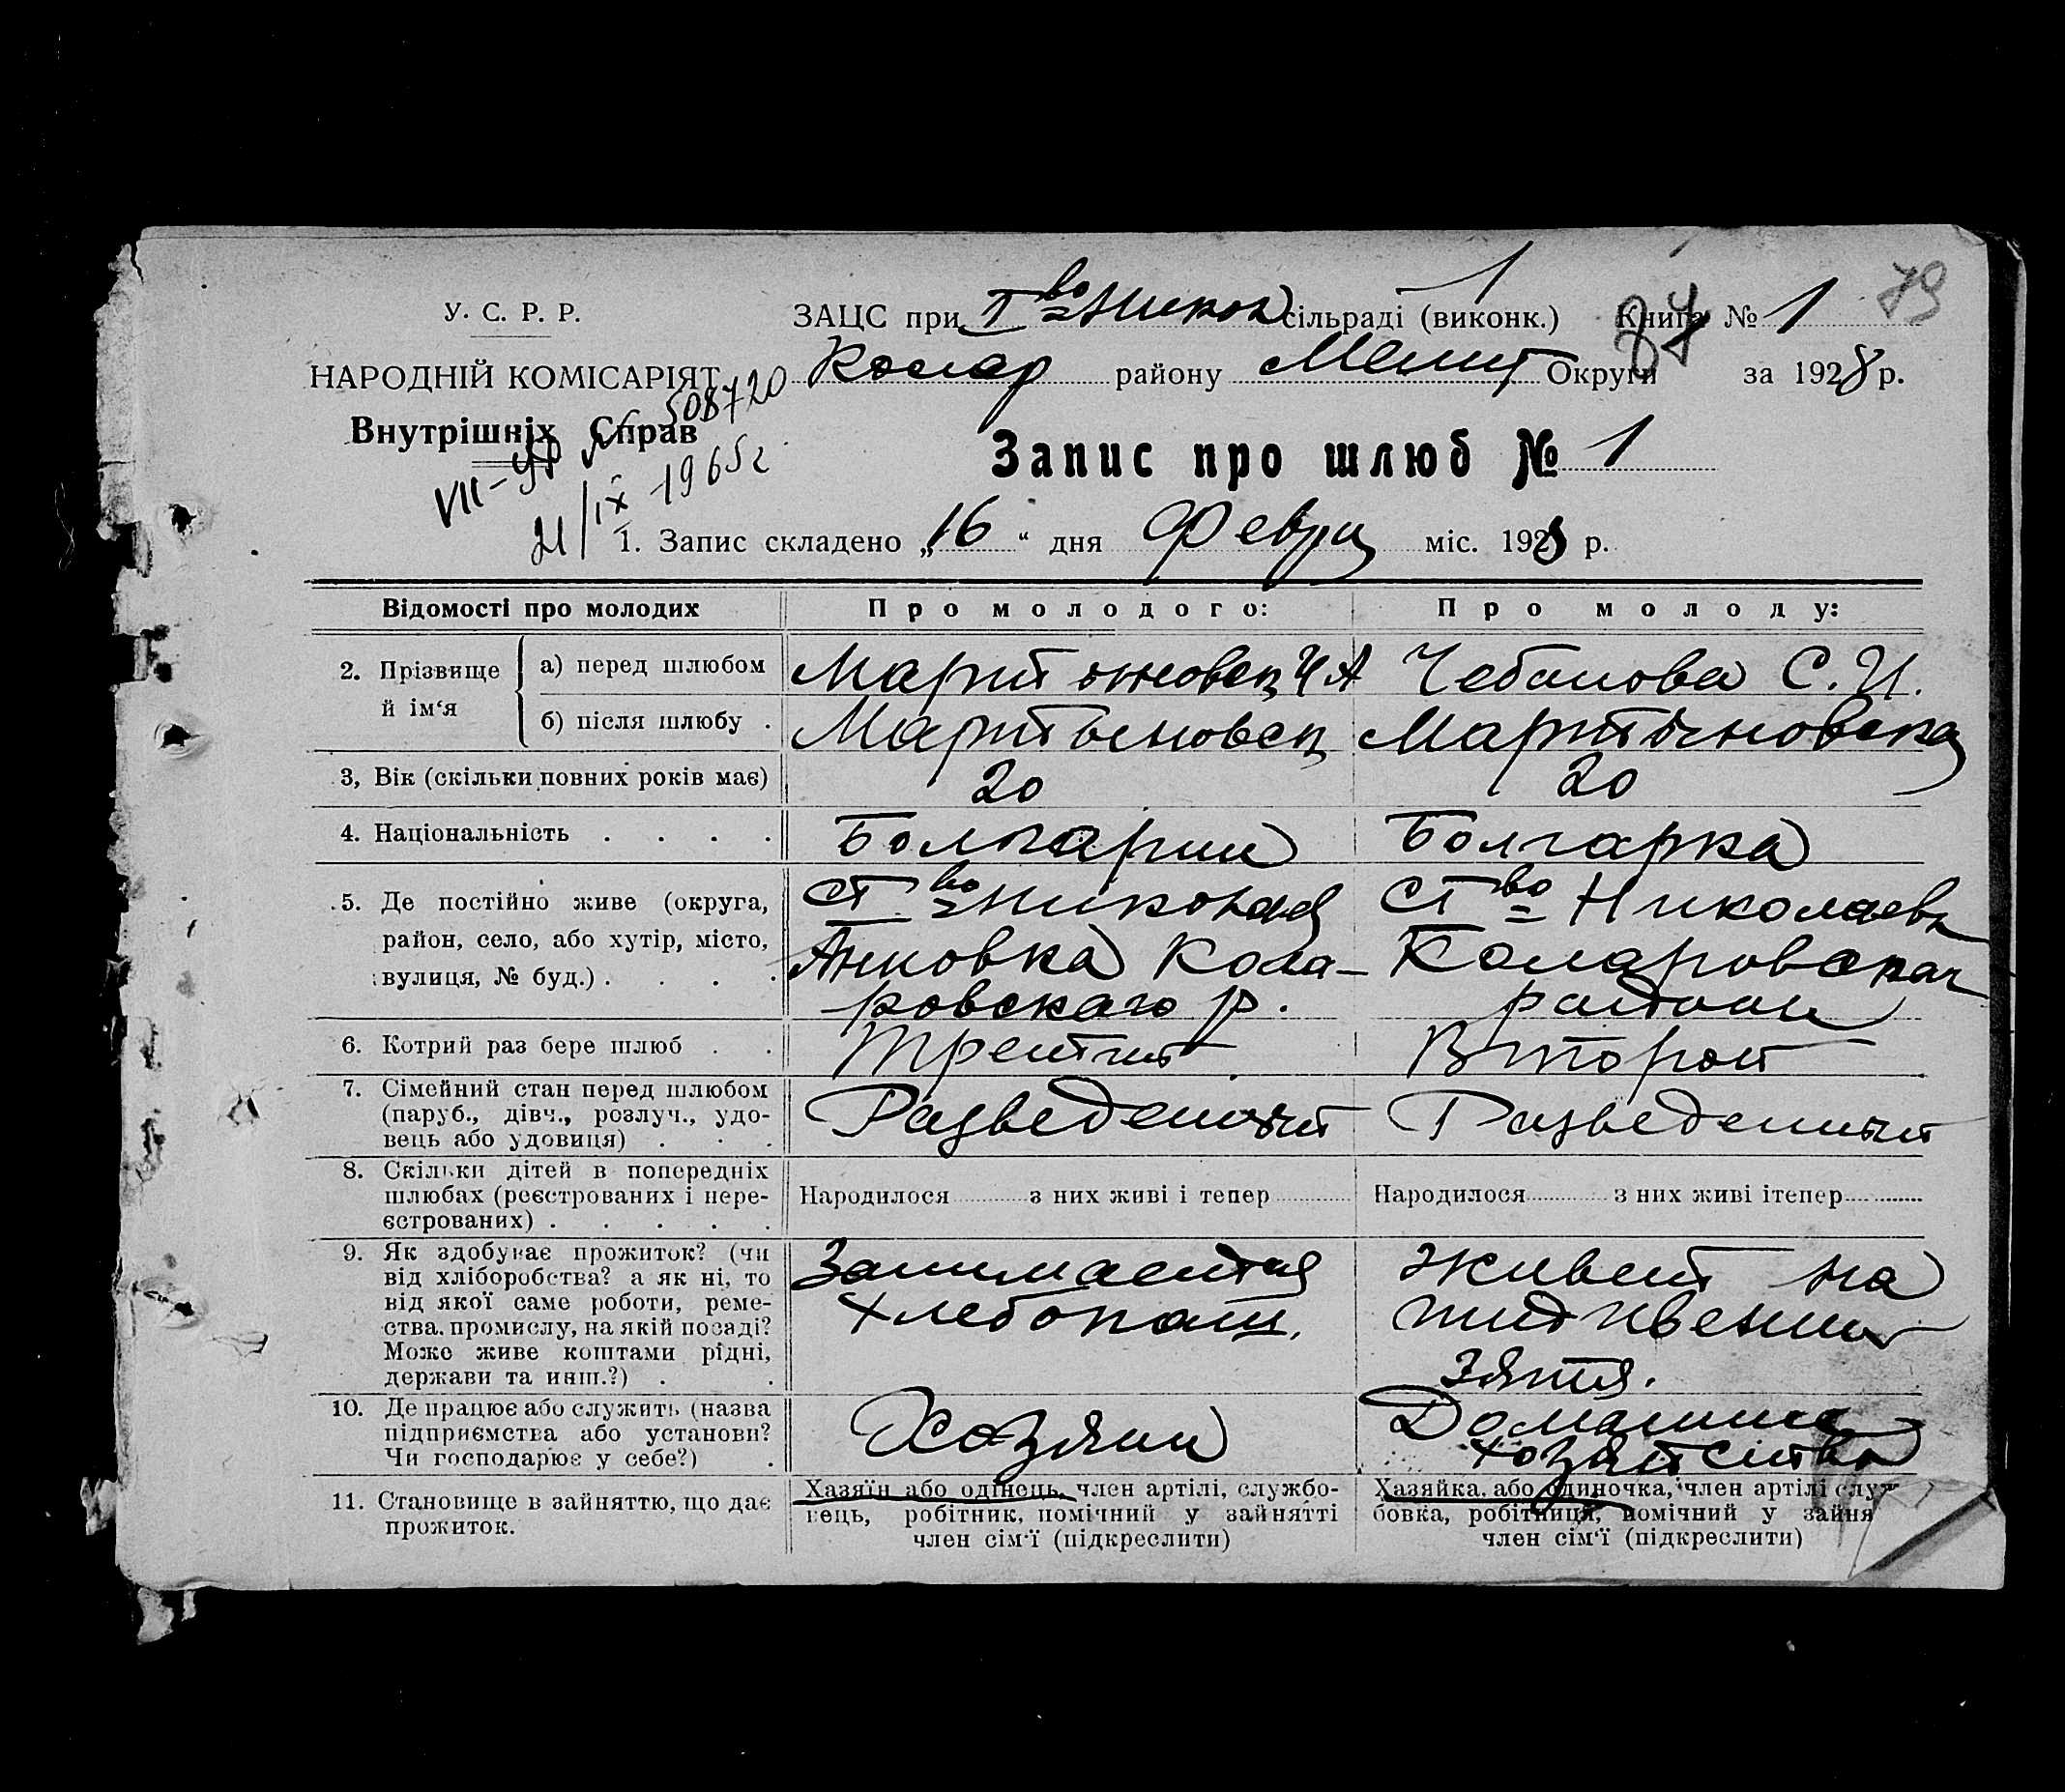 79
У. С. Р. Р.
ЗАЦС при Iво Никол сільраді (виконк.) Книга № 1
НАРОДНІЙ КОМІСАРІЯТ
Колар району Мелит Округи за 1928 р.
Внутрішніх Справ
VII-ЯР № 508720
21/IX 1965г
Запис про шлюб № 1
1. Запис складено „16“ дня Февра міс. 1928 р.
Відомості про молодих Про молодого: Про молоду:
2. Прізвище й ім‘я
а) перед шлюбом Мартыновск И А Чебанова С. И.
б) після шлюбу . Мартыновск Мартыновская
3, Вік (скільки повних років має) 20 20
4. Національність . . . . Болгарин Болгарка
5. Де постійно живе (округа, Ст во Николаев Ст во Николаевк
район, село, або хутір, місто, Кола- Коларовскаг
вулиця, № буд.) . . . . ровскаго р. района
6. Котрий раз бере шлюб . . Третий Второй
7. Сімейний стан перед шлюбом
(паруб., дівч., розлуч., удо-
вець або удовиця) . . . Разведенный Разведенный
8. Скільки дітей в попередніх
шлюбах (реєстрованих і нере-
єстрованих) . . . . .
Народилося з них живі і тепер Народилося з них живі ітепер
9. Як здобуває прожиток? (чи
від хліборобства? а як ні, то
від якої саме роботи, реме-
ства. промислу, на якій посаді?
Може живе коштами рідні,
держави та инш.?) . .
Занимается
хлебопаш.
живет на
иждивении
зятя.
10. Де працює або служить (назва
підприємства або установи?
Чи господарює у себе?) .
Хозяин
Домашнее
хозяйство
11. Становище в зайняттю, що дає
прожиток.
Хазяїн або одінець, член артілі, службо-
вець, робітник, помічний у зайнятті
член сім‘ї (підкреслити)
Хазяйка, або одиночка, член артілі служ
бовка, робітниця, помічний у зайня
член сім‘ї (підкреслити)